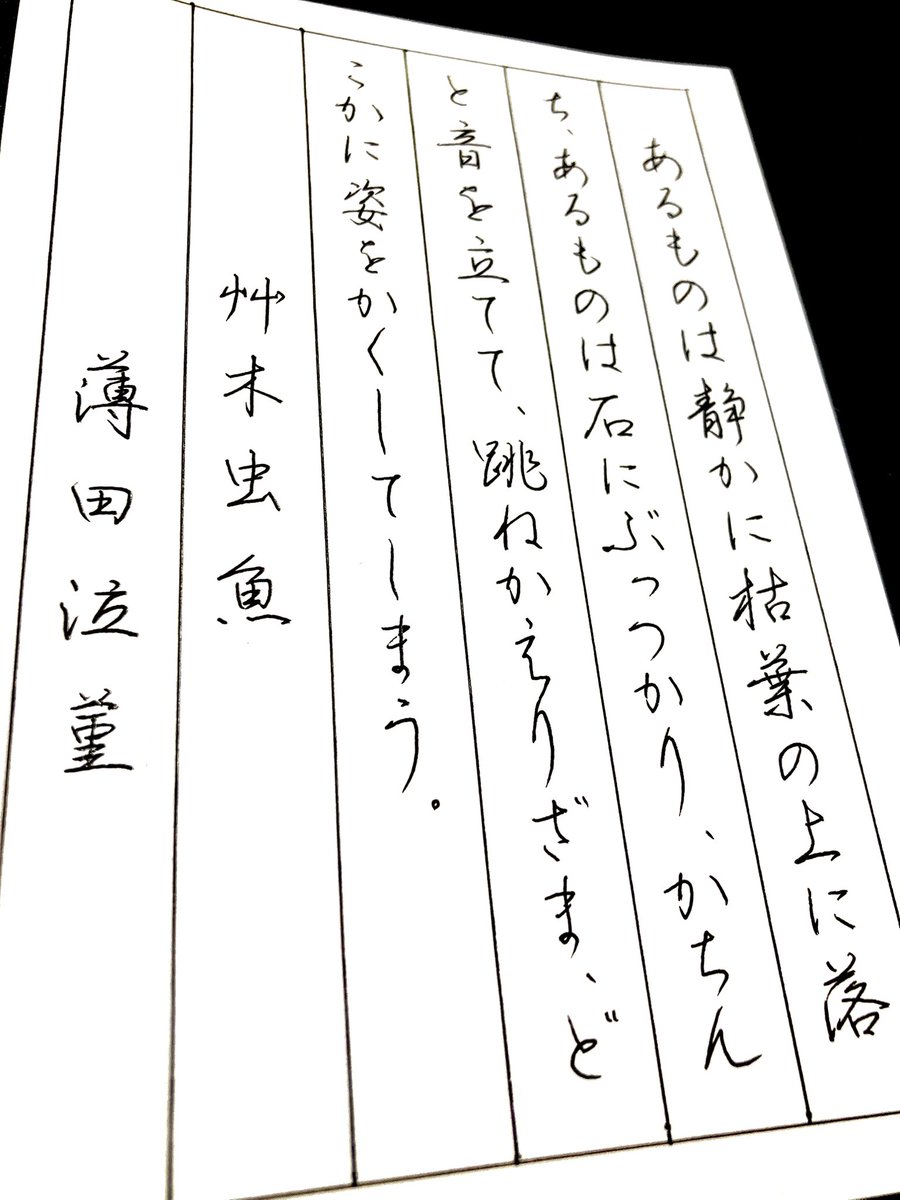 あるものは静かに枯葉の上に落
ち、あるものは石にぶっつかり、かちん
と音を立てて、跳ねかえりざま、ど
こかに姿をかくしてしまう。
艸木虫魚
薄田泣菫